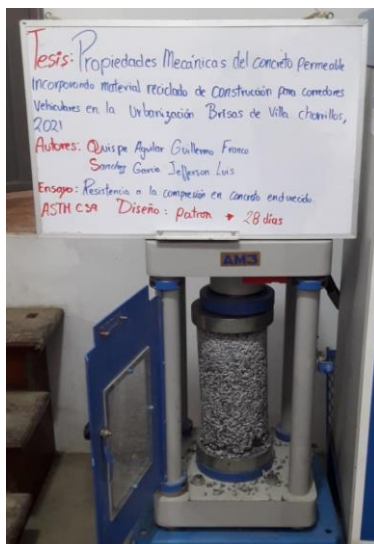 Tesis: Propiedades Mecánicas del concreto Permeable
Incorporando material reciclado de construcción para corredores
vehiculares en la Urbanización Brisas de Villa chorrillos,
2021
Autores: Quispe Aguilar Guillermo Franco
Sanchez Garcia Jefferson Luis
Ensayo: Resistencia a la compresión en concreto endurecido
ASTM C39 Diseño: Patron → 28 días
AM3